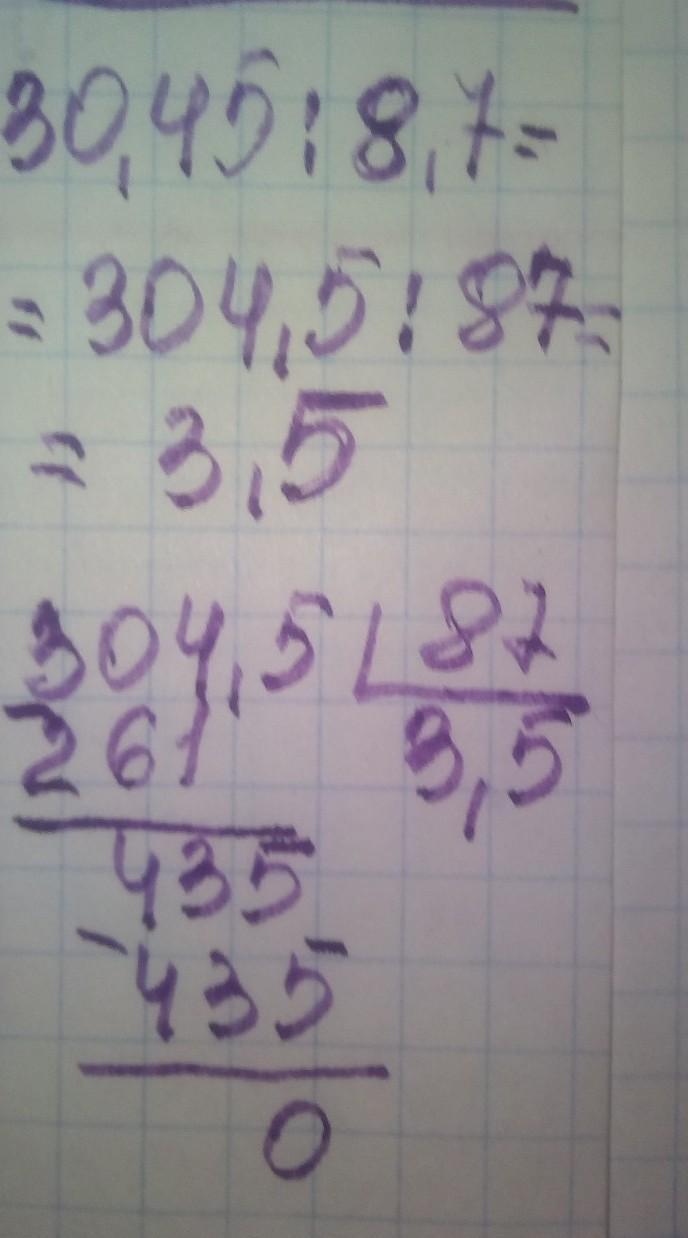 30,45:8,7=
= 304,5:87=
= 3,5
304,5 87
- 261 3,5
435
- 435
0